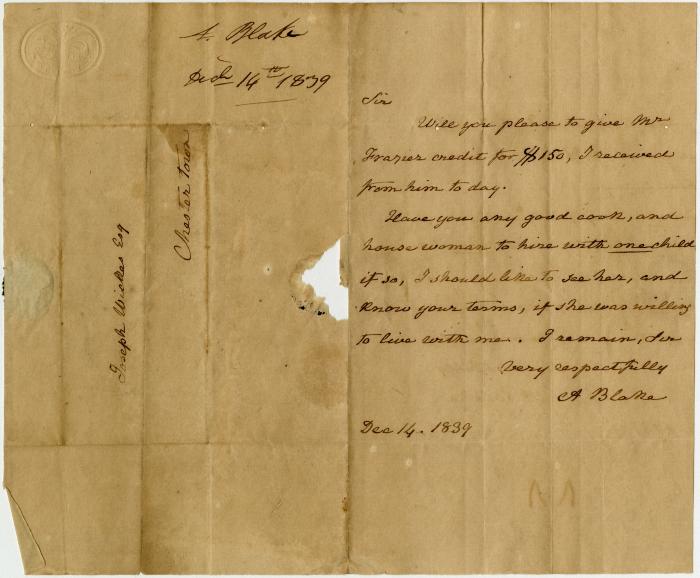 A. Blake
Dec 14th 1839
Joseph Wickes Esq
Chester town
Sir
Will you please to give Mr
Frazier credit for $150, I received
from him to day.
Have you any good cook, and
house woman to hire with one child
if so, I should like to see her, and
know your terms, if she was willing
to live with me. I remain, Sir
very respectfully
A Blake
Dec 14. 1839